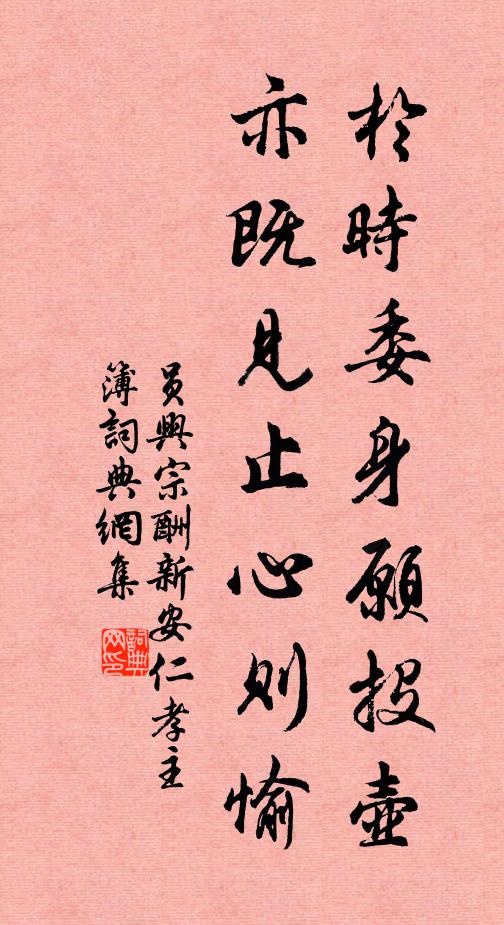 於時委身願投壺
亦既見止心則愉
員興宗酬新安仁孝主
簿詞典網集
詞典网印